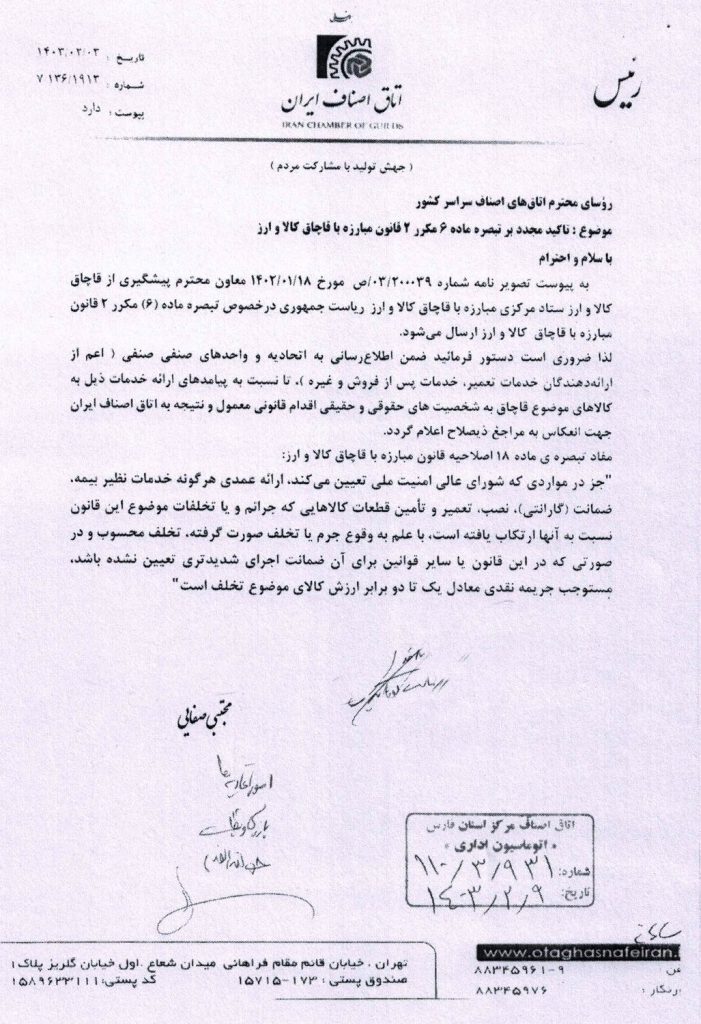 تاریخ : ۱۴۰۳/۰۲/۰۳
شماره : ۷۱۳۶/۱۹۱۳
پیوست : دارد
اتاق اصناف ایران
IRAN CHAMBER OF GUILDS
رئیس
( جهش تولید با مشارکت مردم )
رؤسای محترم اتاق‌های اصناف سراسر کشور
موضوع : تاکید مجدد بر تبصره ماده ۶ مکرر ۲ قانون مبارزه با قاچاق کالا و ارز
با سلام و احترام
به پیوست تصویر نامه شماره ۰۳/۲۰۰۰۳۹/ص مورخ ۱۴۰۲/۰۱/۱۸ معاون محترم پیشگیری از قاچاق
کالا و ارز ستاد مرکزی مبارزه با قاچاق کالا و ارز ریاست جمهوری درخصوص تبصره ماده (۶) مکرر ۲ قانون
مبارزه با قاچاق کالا و ارز ارسال می‌شود.
لذا ضروری است دستور فرمائید ضمن اطلاع‌رسانی به اتحادیه و واحدهای صنفی صنفی ( اعم از
ارائه‌دهندگان خدمات تعمیر، خدمات پس از فروش و غیره )، تا نسبت به پیامدهای ارائه خدمات ذیل به
کالاهای موضوع قاچاق به شخصیت های حقوقی و حقیقی اقدام قانونی معمول و نتیجه به اتاق اصناف ایران
جهت انعکاس به مراجع ذیصلاح اعلام گردد.
مفاد تبصره ی ماده ۱۸ اصلاحیه قانون مبارزه با قاچاق کالا و ارز:
"جز در مواردی که شورای عالی امنیت ملی تعیین می‌کند، ارائه عمدی هرگونه خدمات نظیر بیمه،
ضمانت (گارانتی)، نصب، تعمیر و تأمین قطعات کالاهایی که جرائم و یا تخلفات موضوع این قانون
نسبت به آنها ارتکاب یافته است، با علم به وقوع جرم یا تخلف صورت گرفته، تخلف محسوب و در
صورتی که در این قانون یا سایر قوانین برای آن ضمانت اجرای شدیدتری تعیین نشده باشد،
مستوجب جریمه نقدی معادل یک تا دو برابر ارزش کالای موضوع تخلف است"
مجتبی صفایی
اتاق اصناف مرکز استان فارس
* اتوماسیون اداری *
شماره: ۱۱۰/۳/۹۳۱
تاریخ: ۱۴۰۳/۲/۹
تهران ، خیابان قائم مقام فراهانی میدان شعاع .اول خیابان گلریز پلاک۱
صندوق پستی : ۱۷۳-۱۵۷۱۵ کد پستی: ۱۵۸۹۶۳۳۱۱۱
www.otaghasnafeiran.
۸۸۳۴۵۹۶۱-۹
۸۸۳۴۵۹۷۶